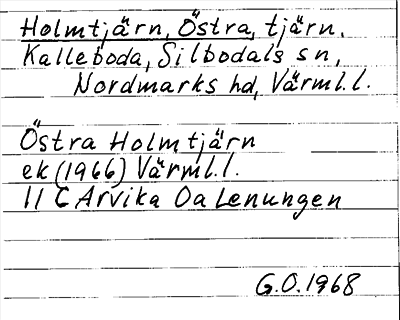 Holmtjärn, Östra, tjärn.
Kalleboda, Silbodals sn,
Nordmarks hd, Värml.l.
Östra Holmtjärn
ek (1966) Värml.l.
11 C Arvika Oa Lenungen
G.O.1968